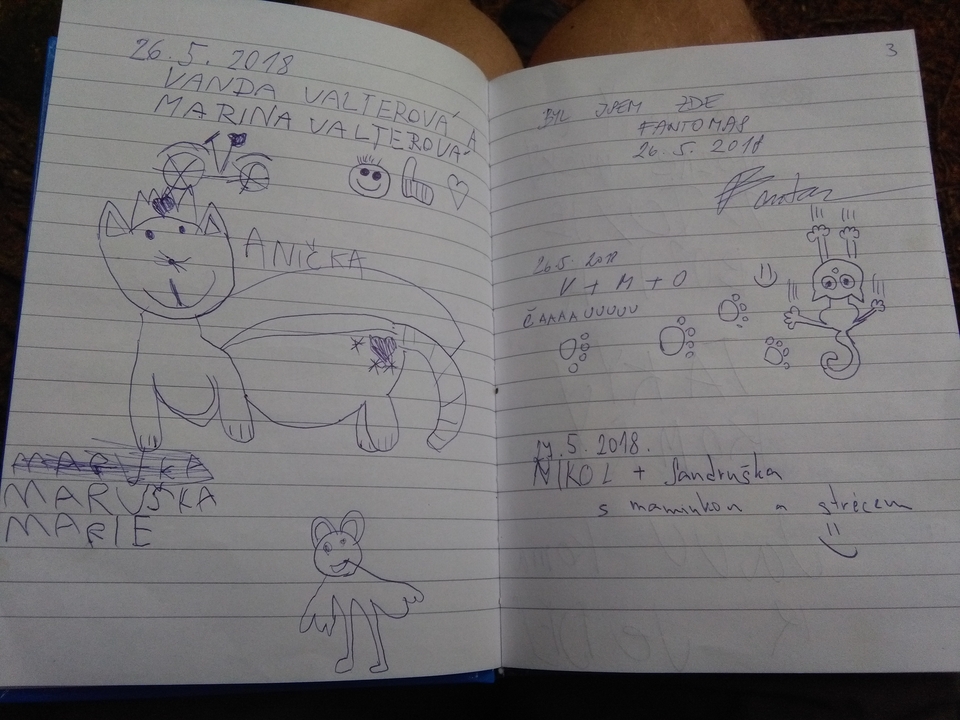 26.5.2018
VANDA VALTEROVÁ A
MARINA VALTEROVÁ
ANIČKA
MARUŠKA
MARUŠKA
MARIE
3
BYL JSEM ZDE
FANTOMAS
26.5.2018
26.5.2018
V + M + O
ČAAAAUUUUU
5.2018.
NIKOL + Sandruška
s maminkou a strécem